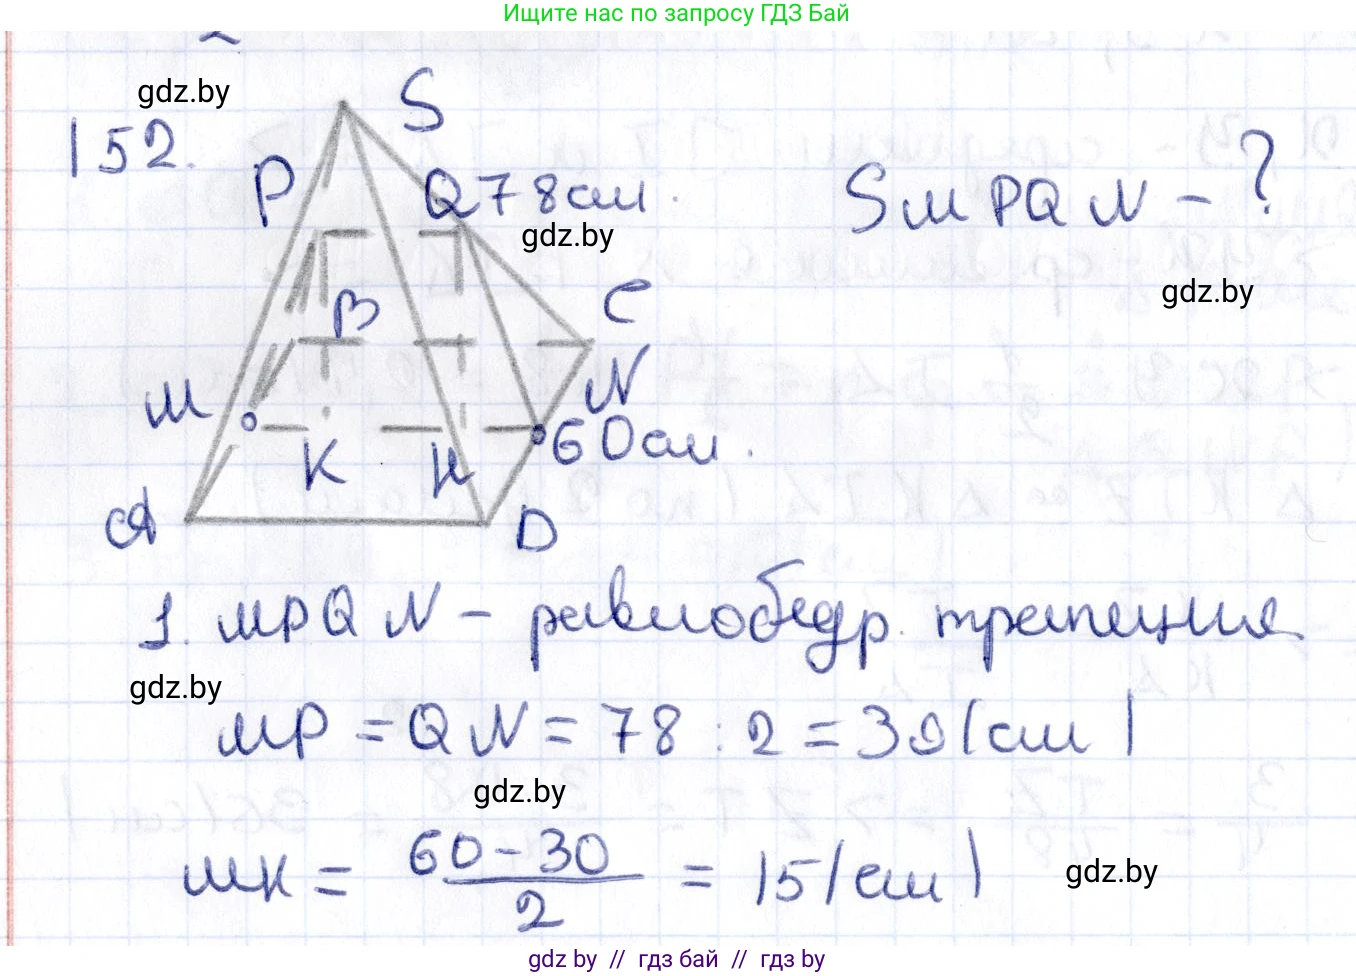 Ищите нас по запросу ГДЗ Бай
gdz.by
152.
S
P
Q 78 см.
SMPQN - ?
gdz.by
gdz.by
B
C
M
N
K
H
60 см.
A
D
1. MPQN - равнобедр. трапеция
gdz.by
MP = QN = 78 : 2 = 39 (см)
gdz.by
MK = 60 - 30 / 2 = 15 (см)
gdz.by
gdz by // гдз бай // гдз by